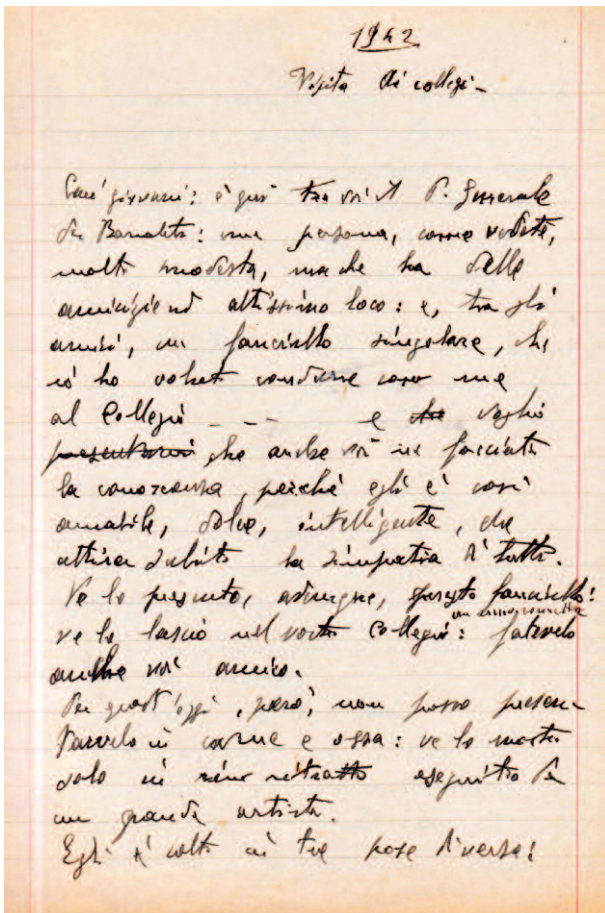 1942
Visita di collegi -
Cari giovani: è qui tra voi il P. Generale
dei Barnabiti: una persona, come vedete,
molto modesta, ma che ha delle
amicizie in altissimo loco: e, tra gli
amici, un fanciullo singolare, che
io ho voluto condurre con me
al Collegio _ _ _ e che voglio
presentarvi che anche voi ne facciate
la conoscenza, perché egli è così
amabile, dolce, intelligente, che
attira subito la simpatia di tutti.
Ve lo presento, adunque, questo fanciullo:
ve lo lascio nel vostro Collegio: fatevelo
anche voi amico.
Per quest'oggi, però, non posso presen-
tarvelo in carne e ossa: ve lo mostro
solo in ritratto eseguito da
un grande artista.
Egli è colto in tre pose diverse: